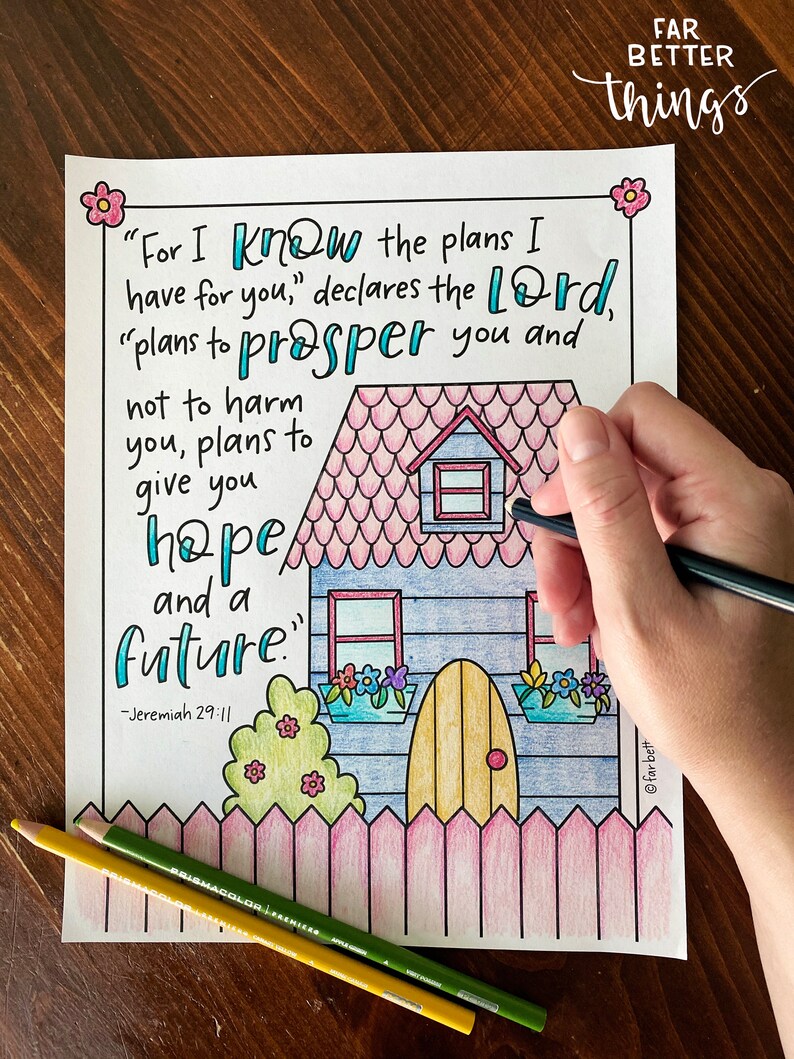 FAR
BETTER
things
"For I know the plans I
have for you," declares the Lord,
"plans to prosper you and
not to harm
you, plans to
give you
hope
and a
future."
-Jeremiah 29:11
©far bett
PRISMACOLOR | PREMIER
PRISMACOLOR | PREMIER